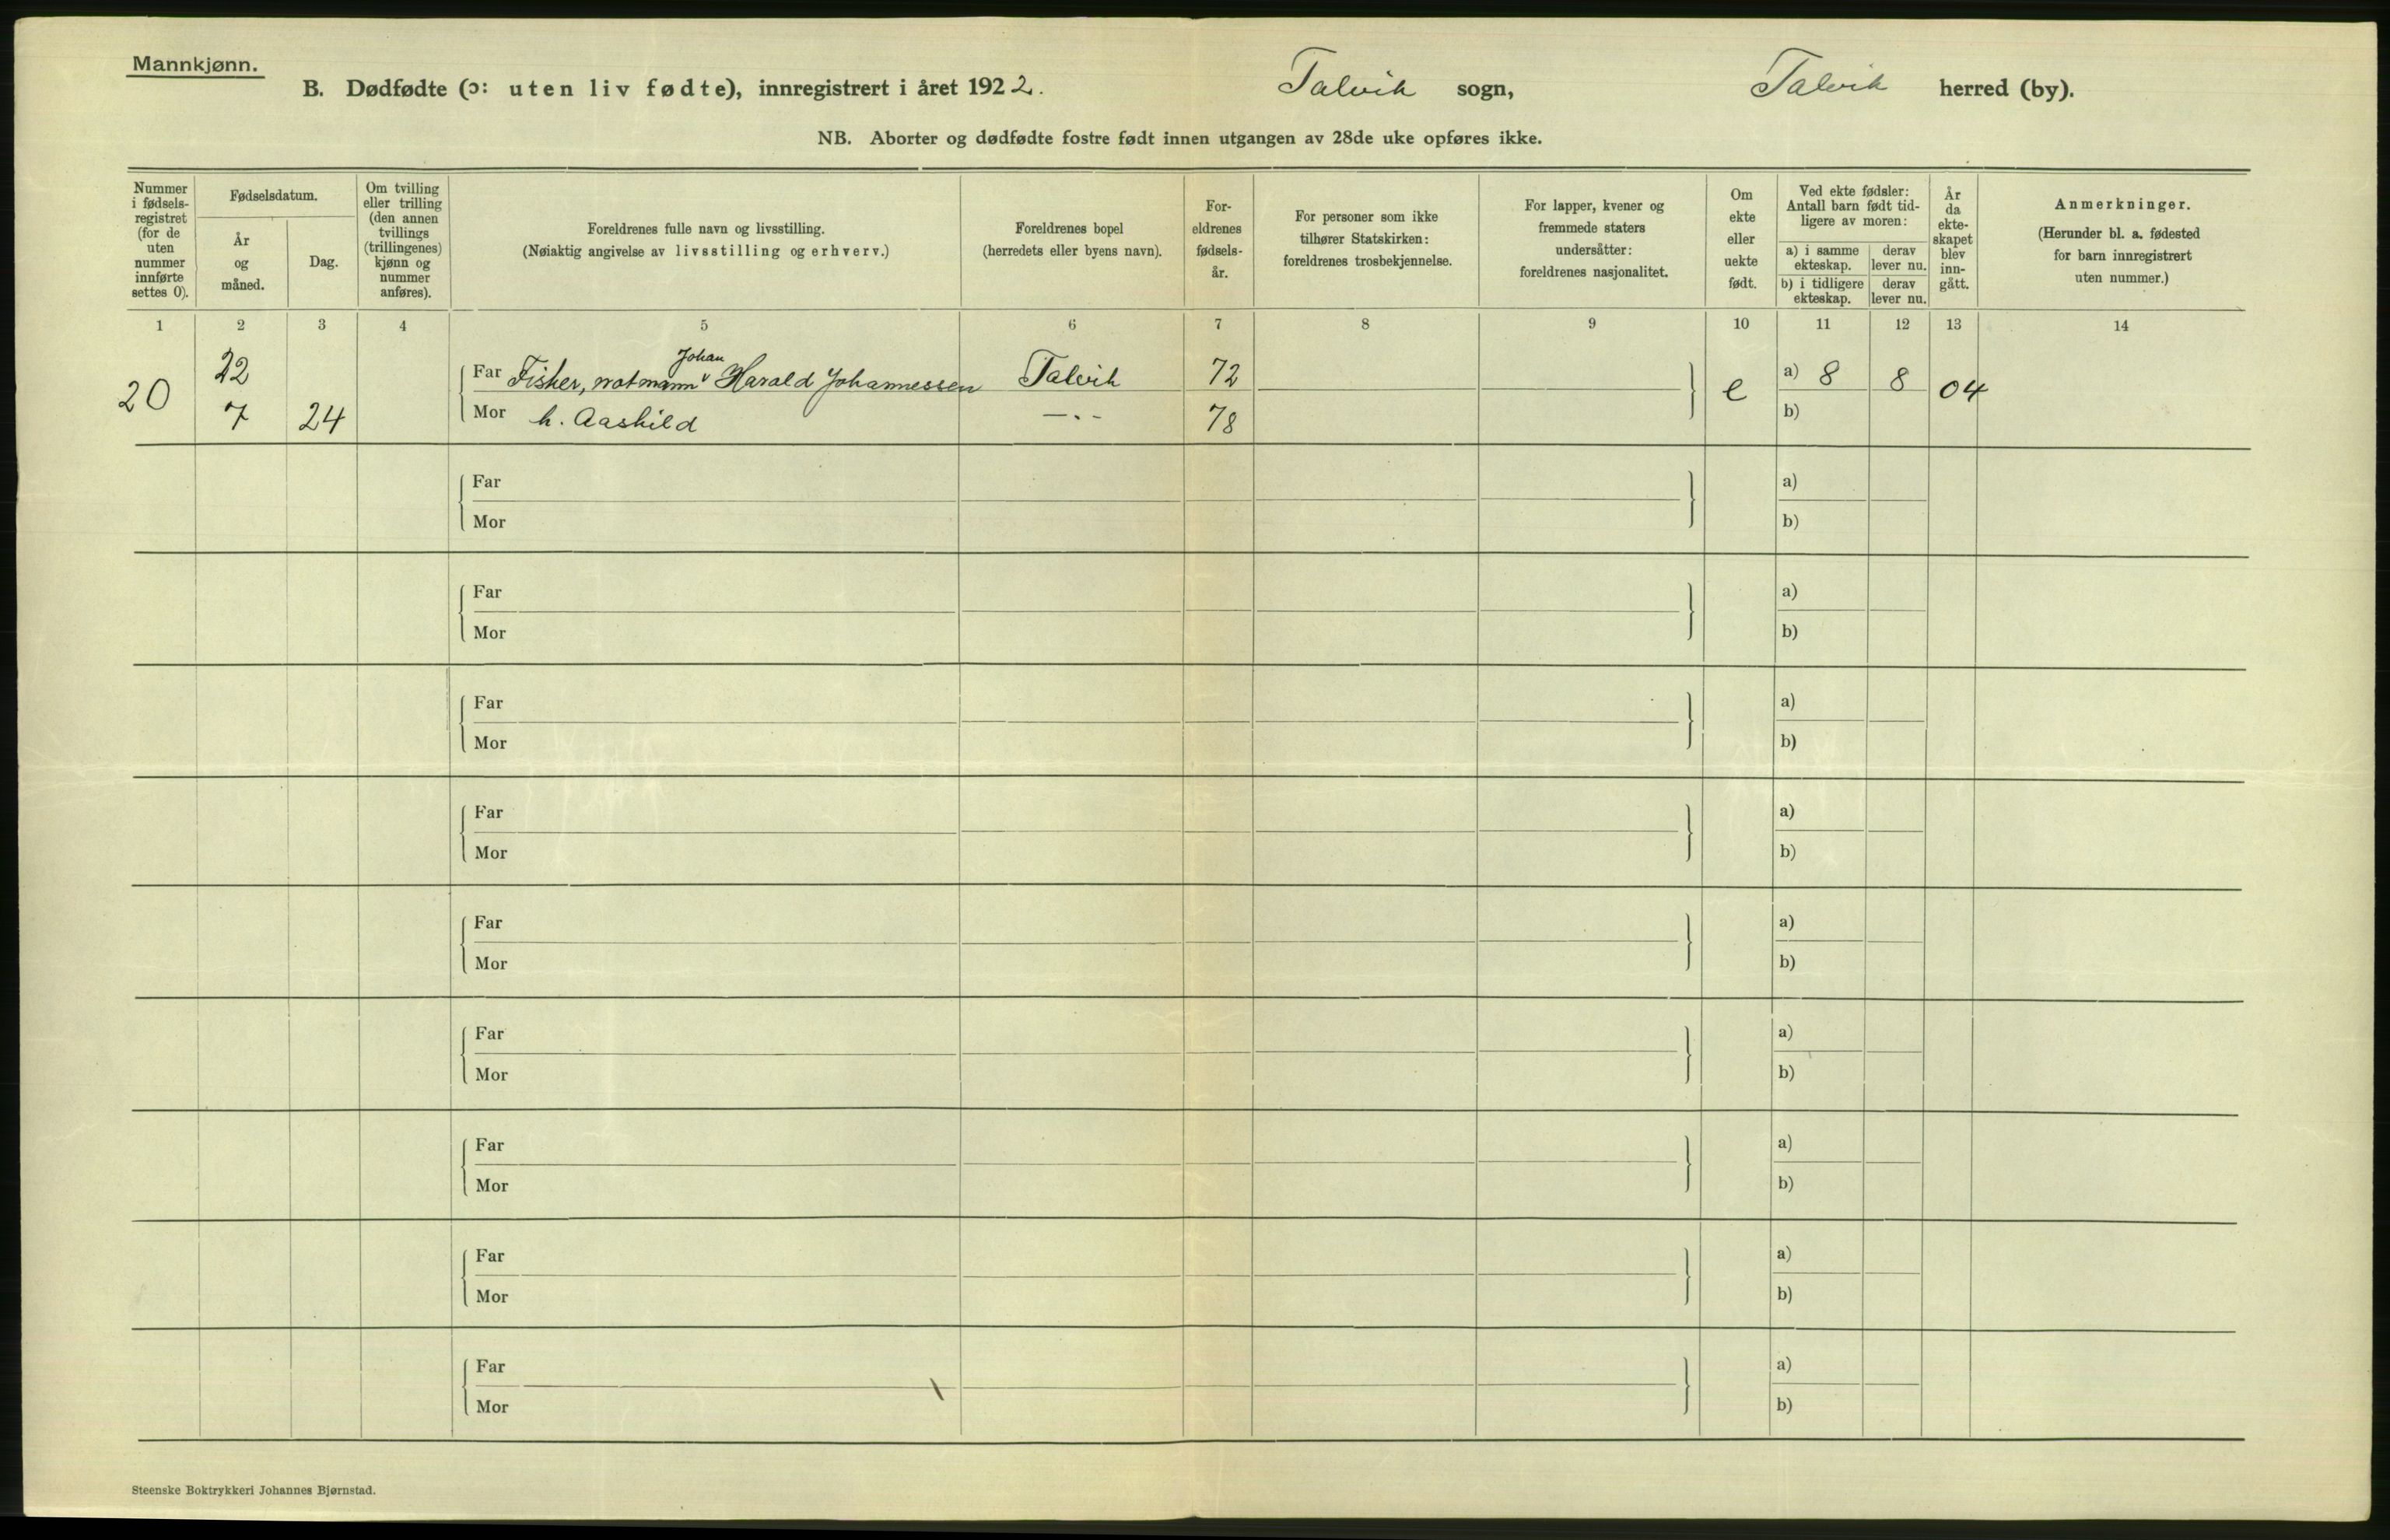 Mannkjønn.
B. Dødfødte (ɔ: uten liv fødte), innregistrert i året 1922. Talvik sogn, Talvik herred (by).
NB. Aborter og dødfødte fostre født innen utgangen av 28de uke opføres ikke.
Nummer i fødsels-registret (for de uten nummer innførte settes 0).
Fødselsdatum.
År og måned.
Dag.
Om tvilling eller trilling (den annen tvillings (trillingenes) kjønn og nummer anføres).
Foreldrenes fulle navn og livsstilling.
(Nøiaktig angivelse av livsstilling og erhverv.)
Foreldrenes bopel
(herredets eller byens navn).
For-eldrenes fødsels-år.
For personer som ikke tilhører Statskirken: foreldrenes trosbekjennelse.
For lapper, kvener og fremmede staters undersåtter: foreldrenes nasjonalitet.
Om ekte eller uekte født.
Ved ekte fødsler: Antall barn født tid-ligere av moren:
a) i samme ekteskap. derav lever nu.
b) i tidligere ekteskap. derav lever nu.
År da ekte-skapet blev inn-gått.
Anmerkninger.
(Herunder bl. a. fødested for barn innregistrert uten nummer.)
1 2 3 4 5 6 7 8 9 10 11 12 13 14
20 22 7 24
Far Fisker, notmann Johan Harald Johannessen Talvik 72 e a) 8 8 04
Mor h. Aashild —·- 78 b)
Far a)
Mor b)
Far a)
Mor b)
Far a)
Mor b)
Far a)
Mor b)
Far a)
Mor b)
Far a)
Mor b)
Far a)
Mor b)
Far a)
Mor b)
Far a)
Mor b)
Steenske Boktrykkeri Johannes Bjørnstad.